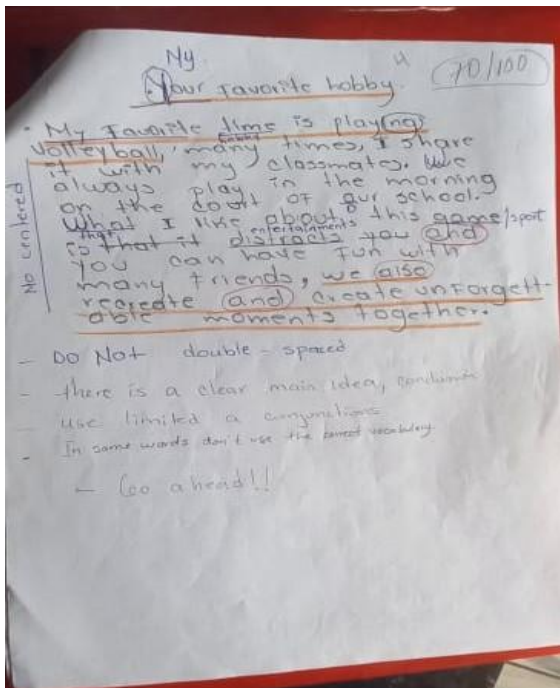 My
Your Favorite hobby.
70/100
• My Favorite time is playing
hobby
volleyball, many times, I share
it with my classmates. We
always play in the morning
on the court of our school.
What I like about this game/sport
that entertainments
is that it distracts you and
you can have fun with
many friends, we also
recreate and create unforgett-
able moments together.
No centered
- DO NOT double-spaced
- there is a clear main idea, conclusion
- use limited a conjunctions
- In some words don't use the correct vocabulary
- Go ahead!!